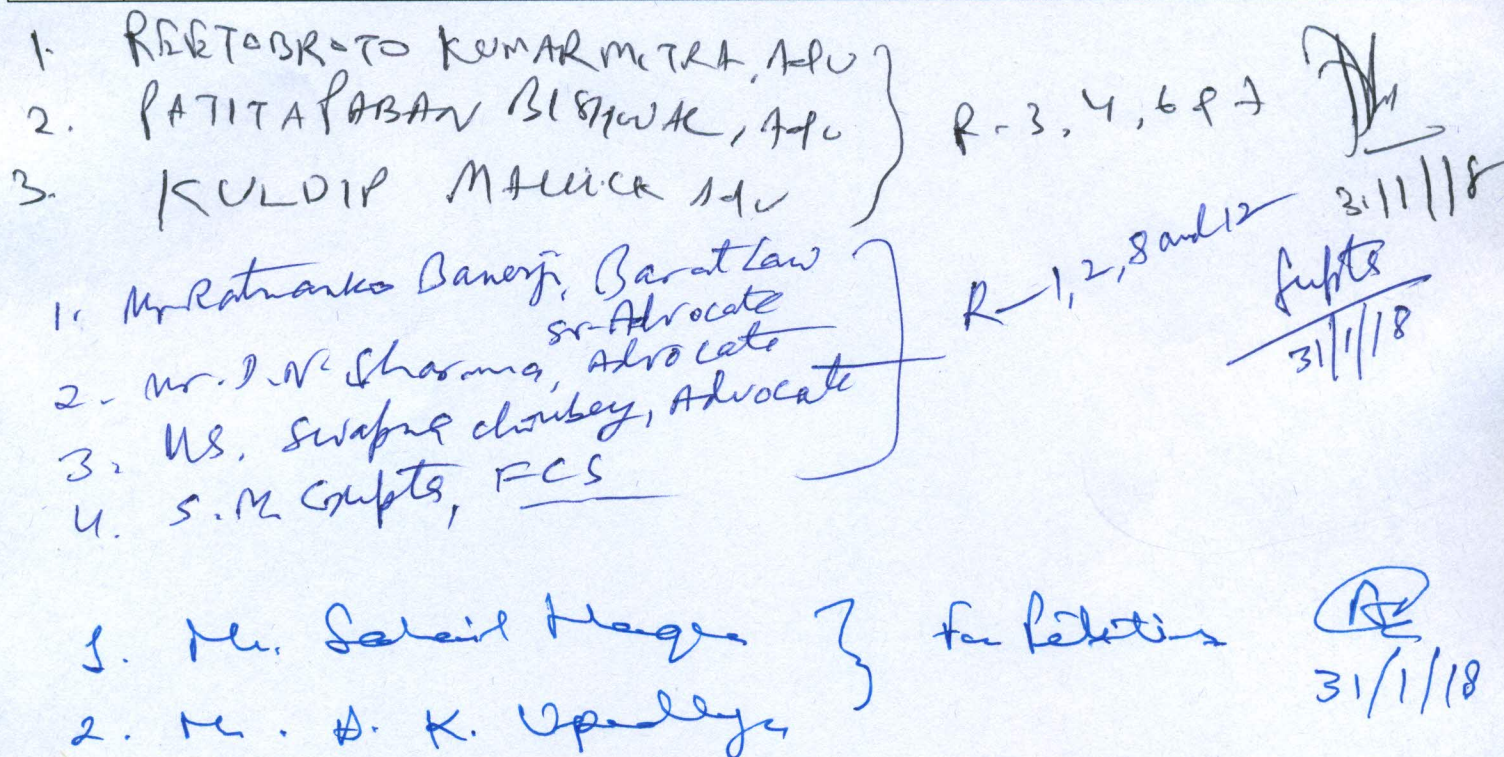 1. REETOBROTO KUMAR MITRA, Adv
2. PATITAPABAN BISHWAL, Adv
3. KULDIP MALLICK Adv
R-3, 4, 6 & 7
31/1/18
1. Mr Ratnanko Banerji, Barat Law
Sr-Advocate
2. Mr. D.N. Sharma, Advocate
3. Ms. Swapna Choubey, Advocate
4. S.M. Gupta, FCS
R-1, 2, 8 and 12
Gupta
31/1/18
1. Mr. Haque
2. Mr. K. Upadhyay
For Petitioner
31/1/18